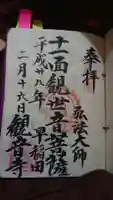 奉拝
弘法大師
十一面観世音菩薩
平成廿八年 早稲田
二月十六日 観音寺